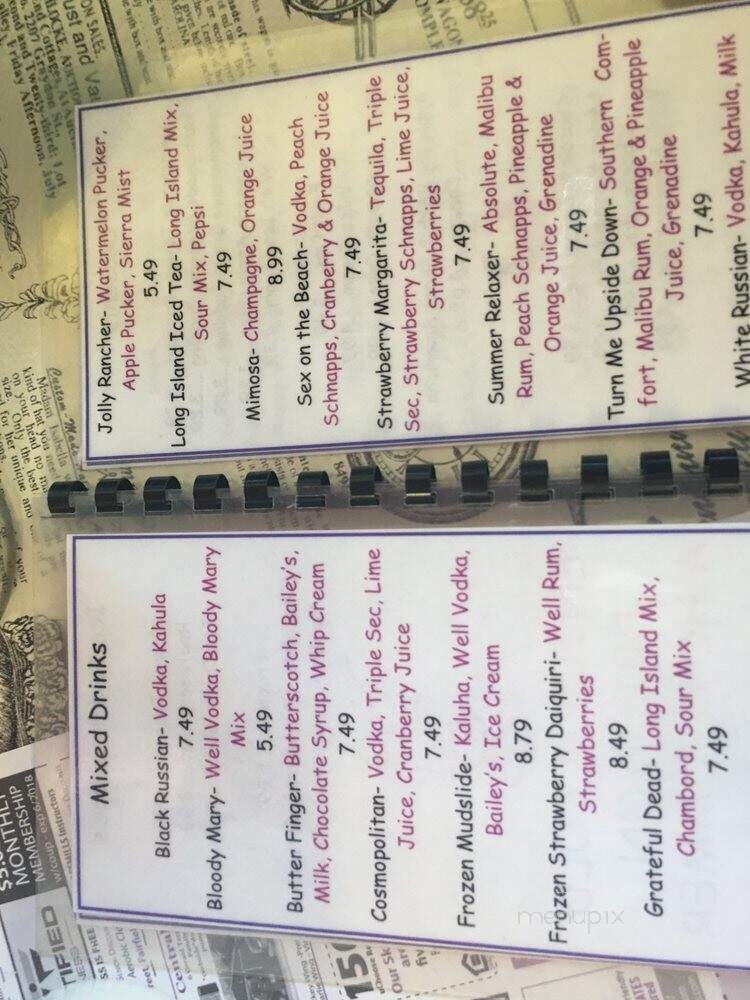 Mixed Drinks
Black Russian- Vodka, Kahula
7.49
Bloody Mary- Well Vodka, Bloody Mary
Mix
5.49
Butter Finger- Butterscotch, Bailey's,
Milk, Chocolate Syrup, Whip Cream
7.49
Cosmopolitan- Vodka, Triple Sec, Lime
Juice, Cranberry Juice
7.49
Frozen Mudslide- Kaluha, Well Vodka,
Bailey's, Ice Cream
8.79
Frozen Strawberry Daiquiri- Well Rum,
Strawberries
8.49
Grateful Dead- Long Island Mix,
Chambord, Sour Mix
7.49
Jolly Rancher- Watermelon Pucker,
Apple Pucker, Sierra Mist
5.49
Long Island Iced Tea- Long Island Mix,
Sour Mix, Pepsi
7.49
Mimosa- Champagne, Orange Juice
8.99
Sex on the Beach- Vodka, Peach
Schnapps, Cranberry & Orange Juice
7.49
Strawberry Margarita- Tequila, Triple
Sec, Strawberry Schnapps, Lime Juice,
Strawberries
7.49
Summer Relaxer- Absolute, Malibu
Rum, Peach Schnapps, Pineapple &
Orange Juice, Grenadine
7.49
Turn Me Upside Down- Southern Com-
fort, Malibu Rum, Orange & Pineapple
Juice, Grenadine
7.49
White Russian- Vodka, Kahula, Milk
MONTHLY
MEMBERSHIP
w/coup - exp 6/2018
menupix